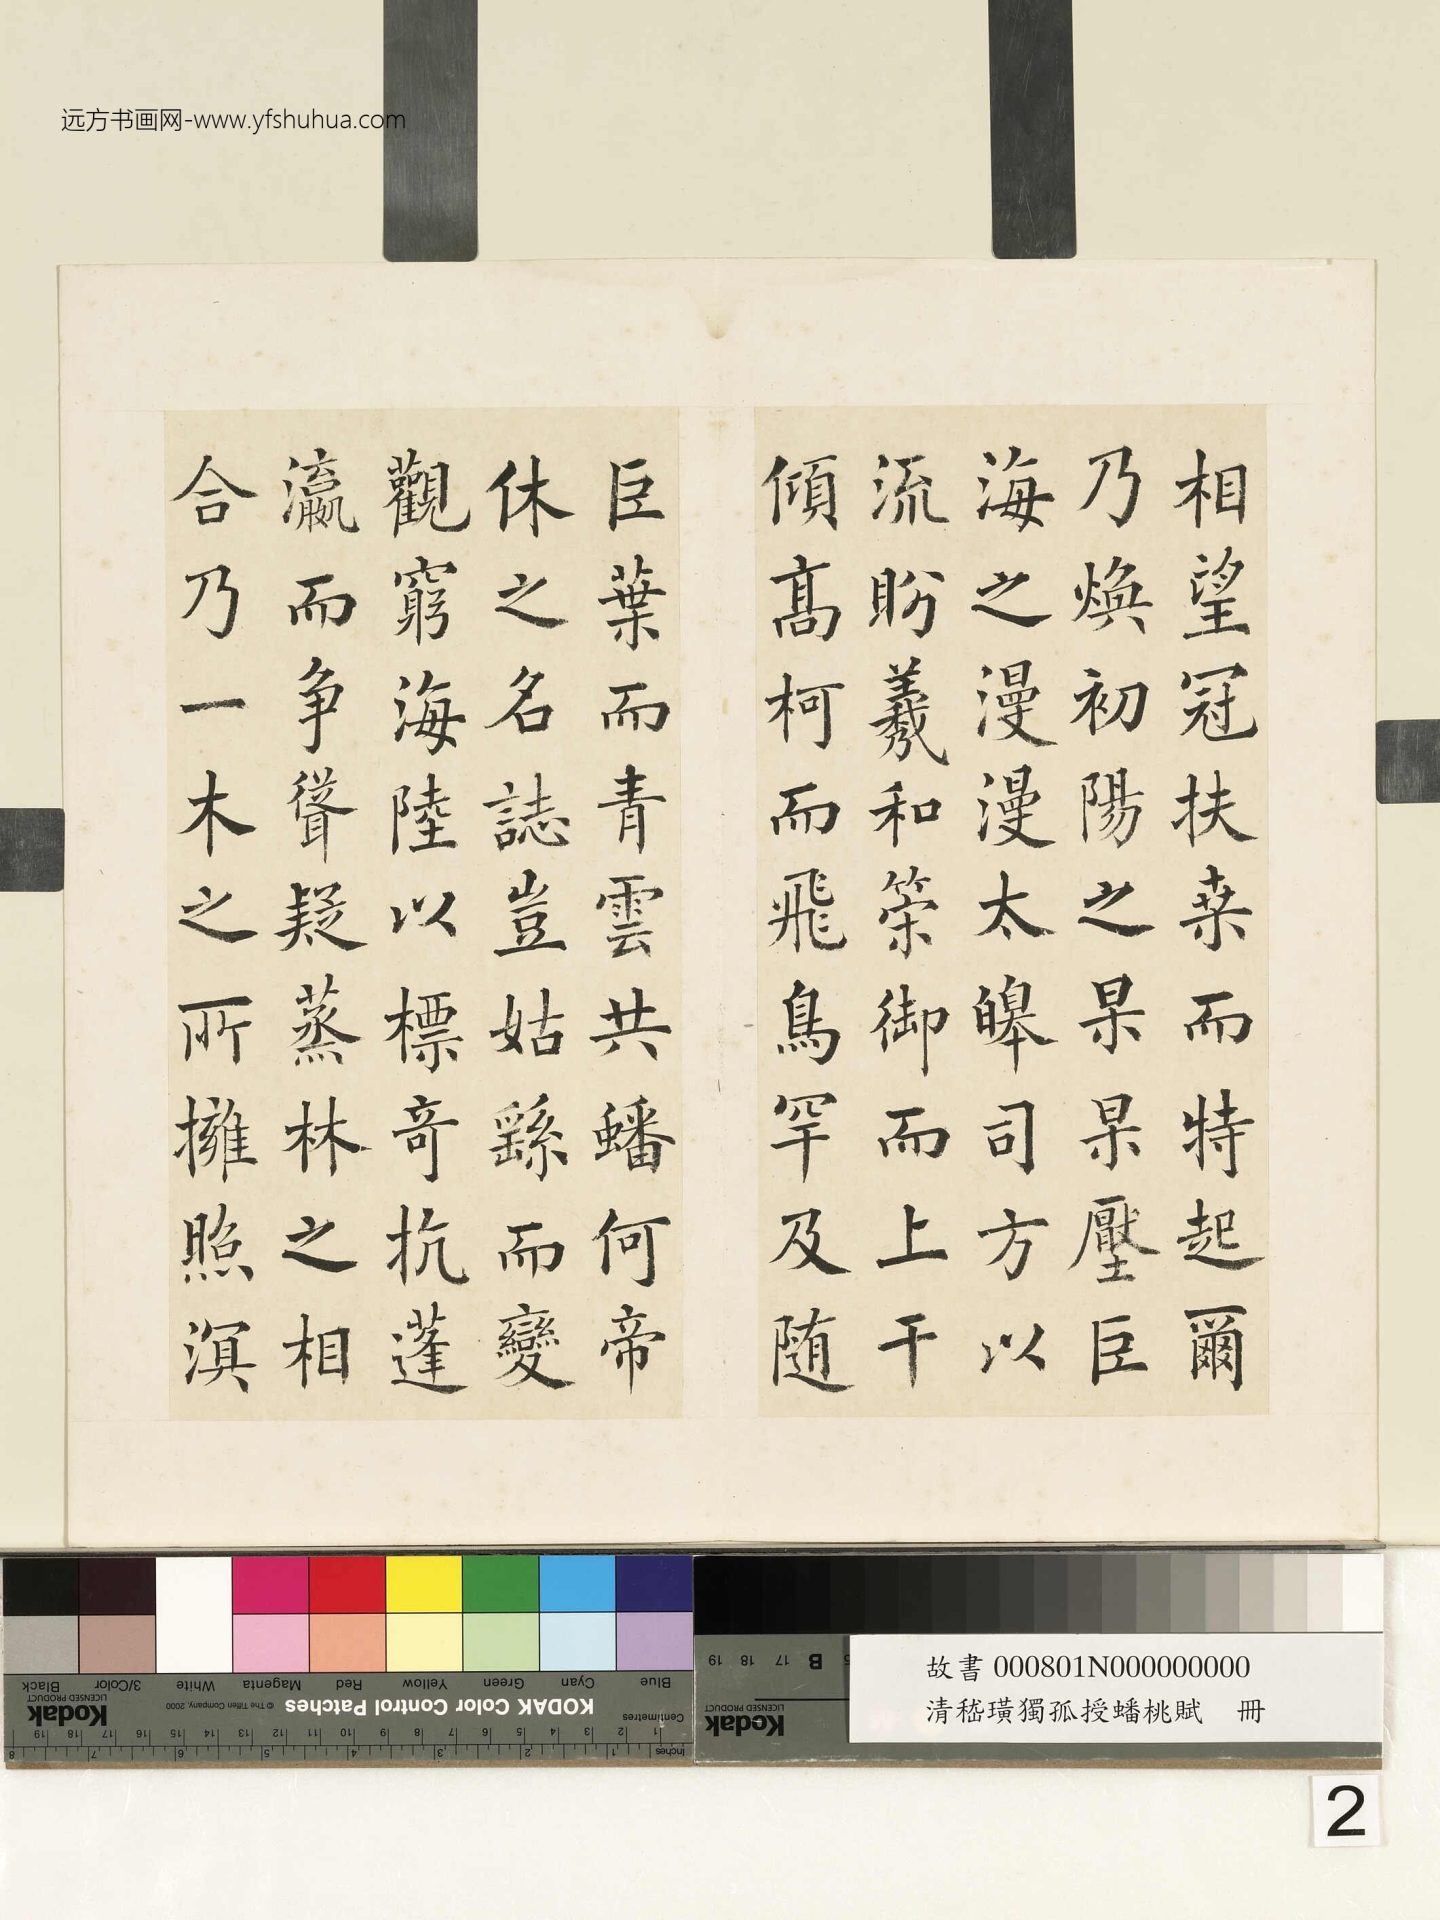 远方书画网-www.yfshuhua.com
相望冠扶桒而特起爾
乃煥初陽之杲杲壓巨
海之漫漫太皞司方以
流盻羲和筞御而上干
傾髙柯而飛鳥罕及随
巨葉而青雲共蟠何帝
休之名誌豈姑繇而變
觀窮海陸以標竒抗蓬
瀛而争聳疑蒸林之相
合乃一木之所擁照溟
Blue
Cyan
Green
Yellow
Red
Magenta
White
3/Color
Black
KODAK Color Control Patches
© The Tiffen Company, 2000
Kodak
LICENSED PRODUCT
Centimetres
1 2 3 4 5 6 7 8 9 10 11 12 13 14 15 16 17 18 19
Inches
1 2 3 4 5 6 7 8
Kodak
LICENSED PRODUCT
B 17 18 19
故書 000801N000000000
清嵇璜獨孤授蟠桃賦 冊
2